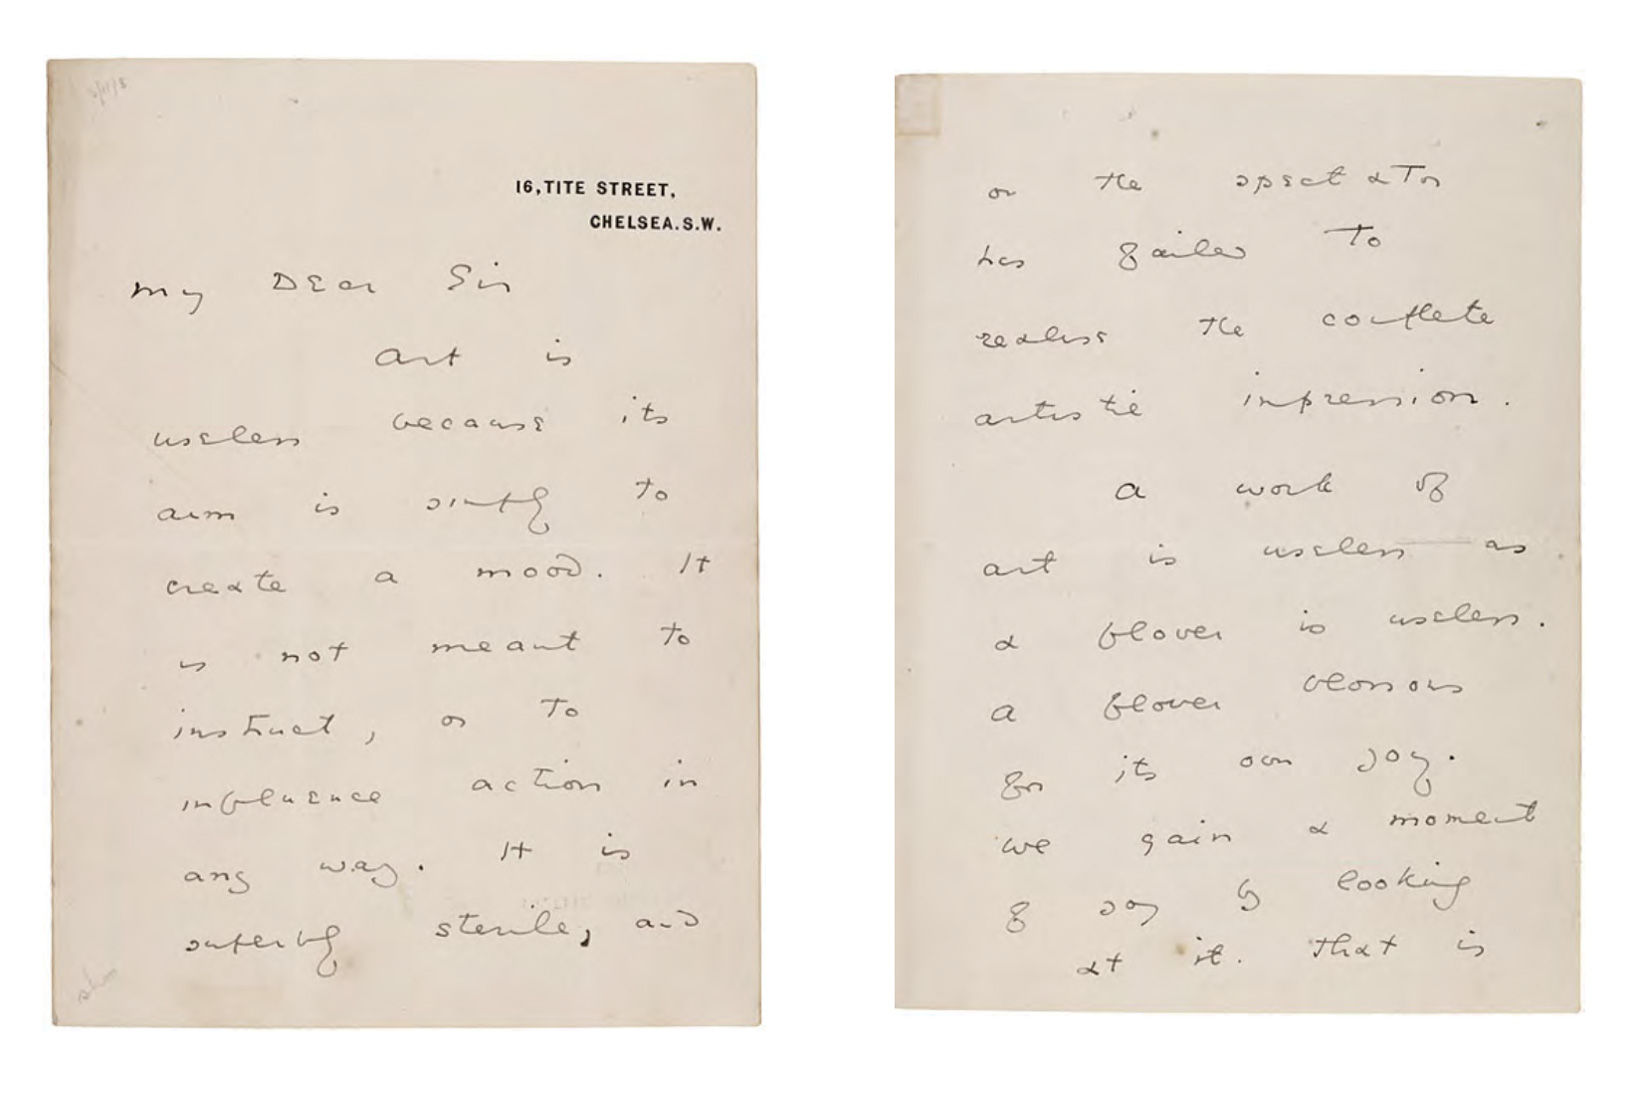 16, TITE STREET,
CHELSEA. S.W.
My Dear Sir
Art is
useless because its
aim is simply to
create a mood. It
is not meant to
instruct, or to
influence action in
any way. It is
superbly sterile, and
or the spectator
has failed to
realise the complete
artistic impression.
A work of
art is useless as
a flower is useless.
A flower blossoms
for its own joy.
We gain a moment
of joy by looking
at it. That is